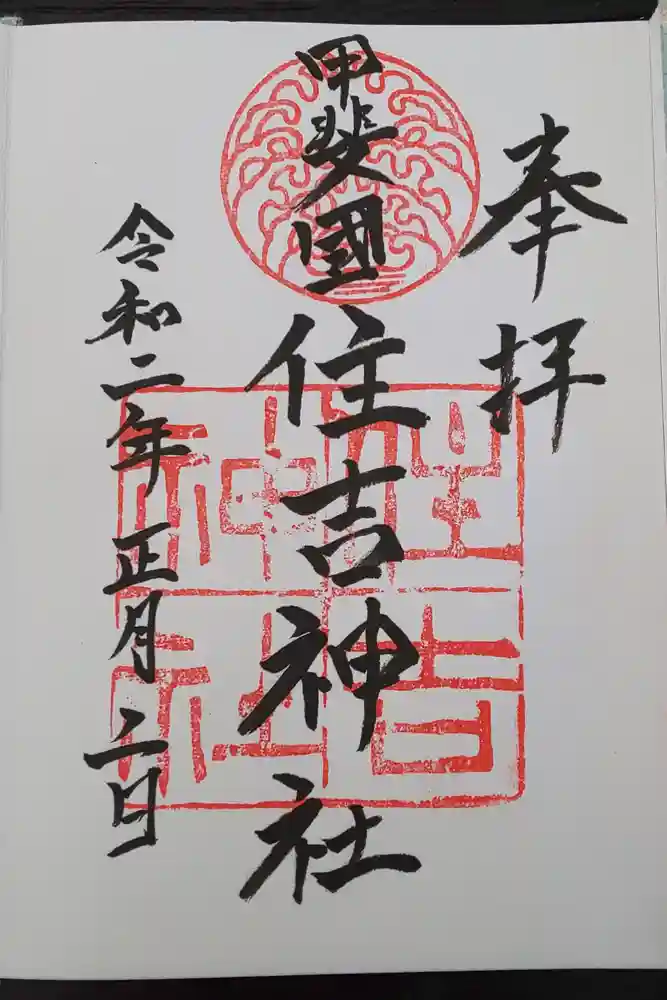 奉拝
甲斐國
住吉神社
令和二年正月二日
住吉
神社